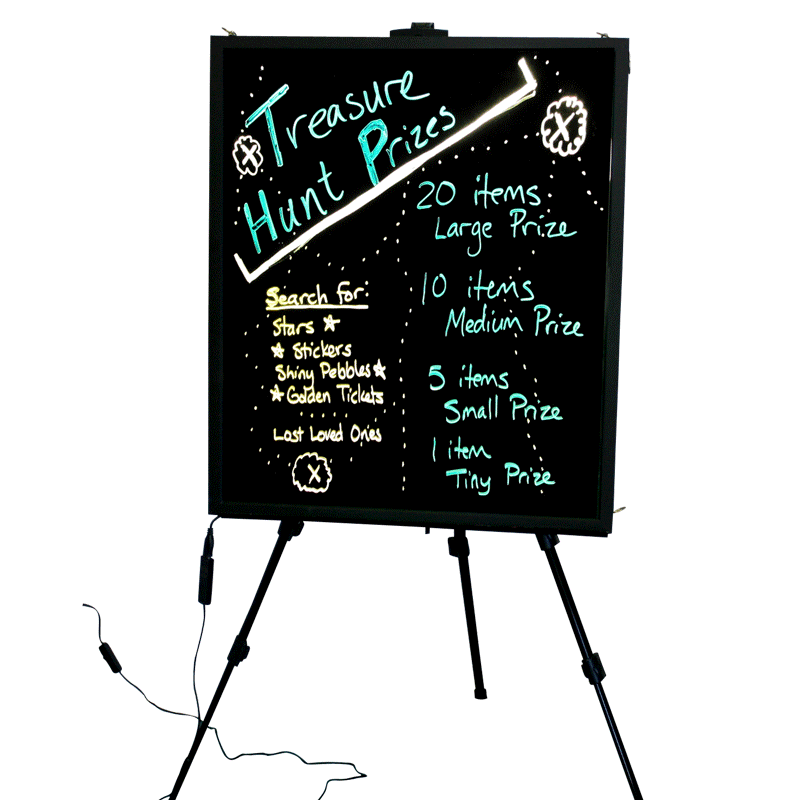 Treasure
Hunt Prizes
Search for:
Stars
Stickers
Shiny Pebbles
Golden Tickets
Lost Loved Ones
X
X
X
20 items
Large Prize
10 items
Medium Prize
5 items
Small Prize
1 item
Tiny Prize